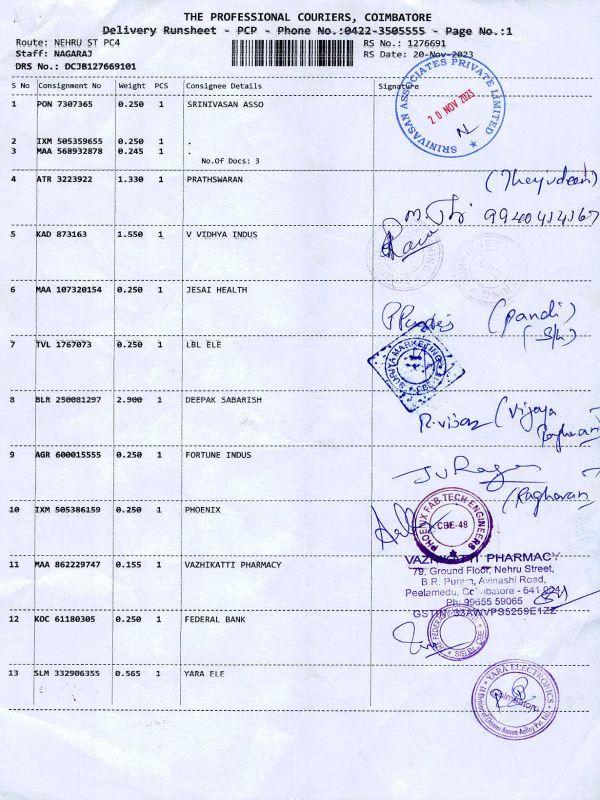 THE PROFESSIONAL COURIERS, COIMBATORE
Delivery Runsheet - PCP - Phone No.:0422-3505555 - Page No.:1
Route: NEHRU ST PC4 RS No.: 1276691
Staff: NAGARAJ RS Date: 20-Nov-2023
DRS No.: DCJB127669101
S No Consignment No Weight PCS Consignee Details Signature
1 PON 7307365 0.250 1 SRINIVASAN ASSO
SRINIVASAN ASSOCIATES PRIVATE LIMITED
20 NOV 2023
2 IXM 505359655 0.250 1 .
3 MAA 568932878 0.245 1 .
No.Of Docs: 3
4 ATR 3223922 1.330 1 PRATHSWARAN
5 KAD 873163 1.550 1 V VIDHYA INDUS
6 MAA 107320154 0.250 1 JESAI HEALTH
(Pandi)
7 TVL 1767073 0.250 1 LBL ELE
8 BLR 250081297 2.900 1 DEEPAK SABARISH
(Vijaya
9 AGR 600015555 0.250 1 FORTUNE INDUS
(Raghavan)
10 IXM 505386159 0.250 1 PHOENIX
PHOENIX FAB TECH ENGINEERS
CBE-48
11 MAA 862229747 0.155 1 VAZHIKATTI PHARMACY
VAZHIKATTI PHARMACY
79, Ground Floor, Nehru Street,
B.R. Puram, Avinashi Road,
Peelamedu, Coimbatore - 641
Ph: 99655 59065
GSTIN: 33AWVPS5259E1ZZ
12 KOC 61180305 0.250 1 FEDERAL BANK
13 SLM 332906355 0.565 1 YARA ELE
YARA ELECTRONICS
Coimbatore